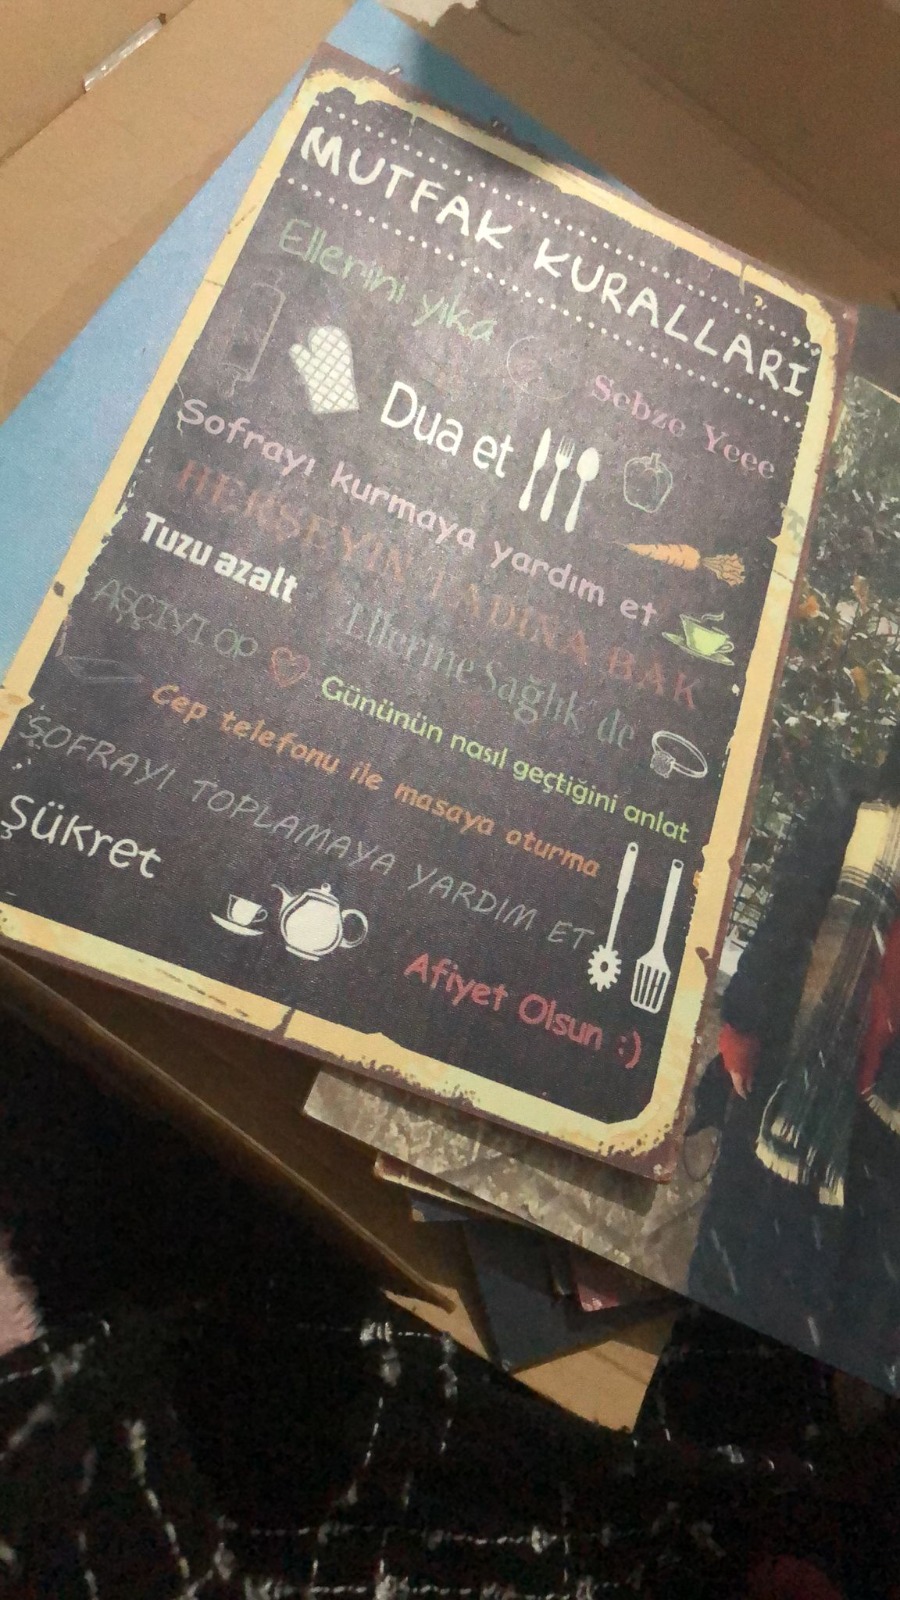 MUTFAK KURALLARI
Ellerini yıka
Sebze Yeee
Dua et
Sofrayı kurmaya yardım et
HERŞEYİN TADINA BAK
Tuzu azalt
Ellerine Sağlık' de
AŞÇIYI ÖP
Gününün nasıl geçtiğini anlat
Cep telefonu ile masaya oturma
SOFRAYI TOPLAMAYA YARDIM ET
Şükret
Afiyet Olsun :)